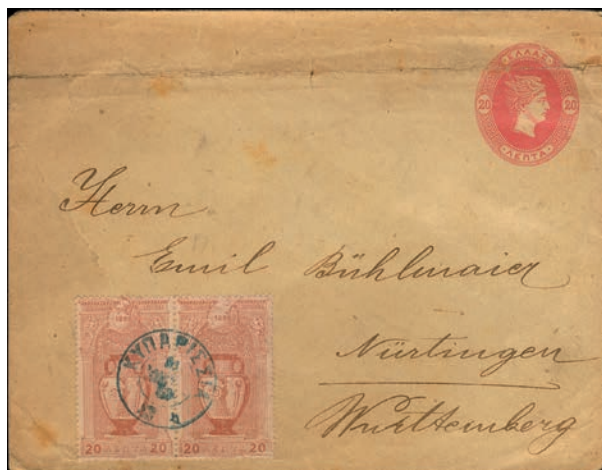 ΕΛΛΑΣ
20 20
ΛΕΠΤΑ
Herrn
Emil Bühlmaier
Nürtingen
Württemberg
ΚΥΠΑΡΙΣΣΙΑ
20 ΛΕΠΤΑ 20 20 ΛΕΠΤΑ 20